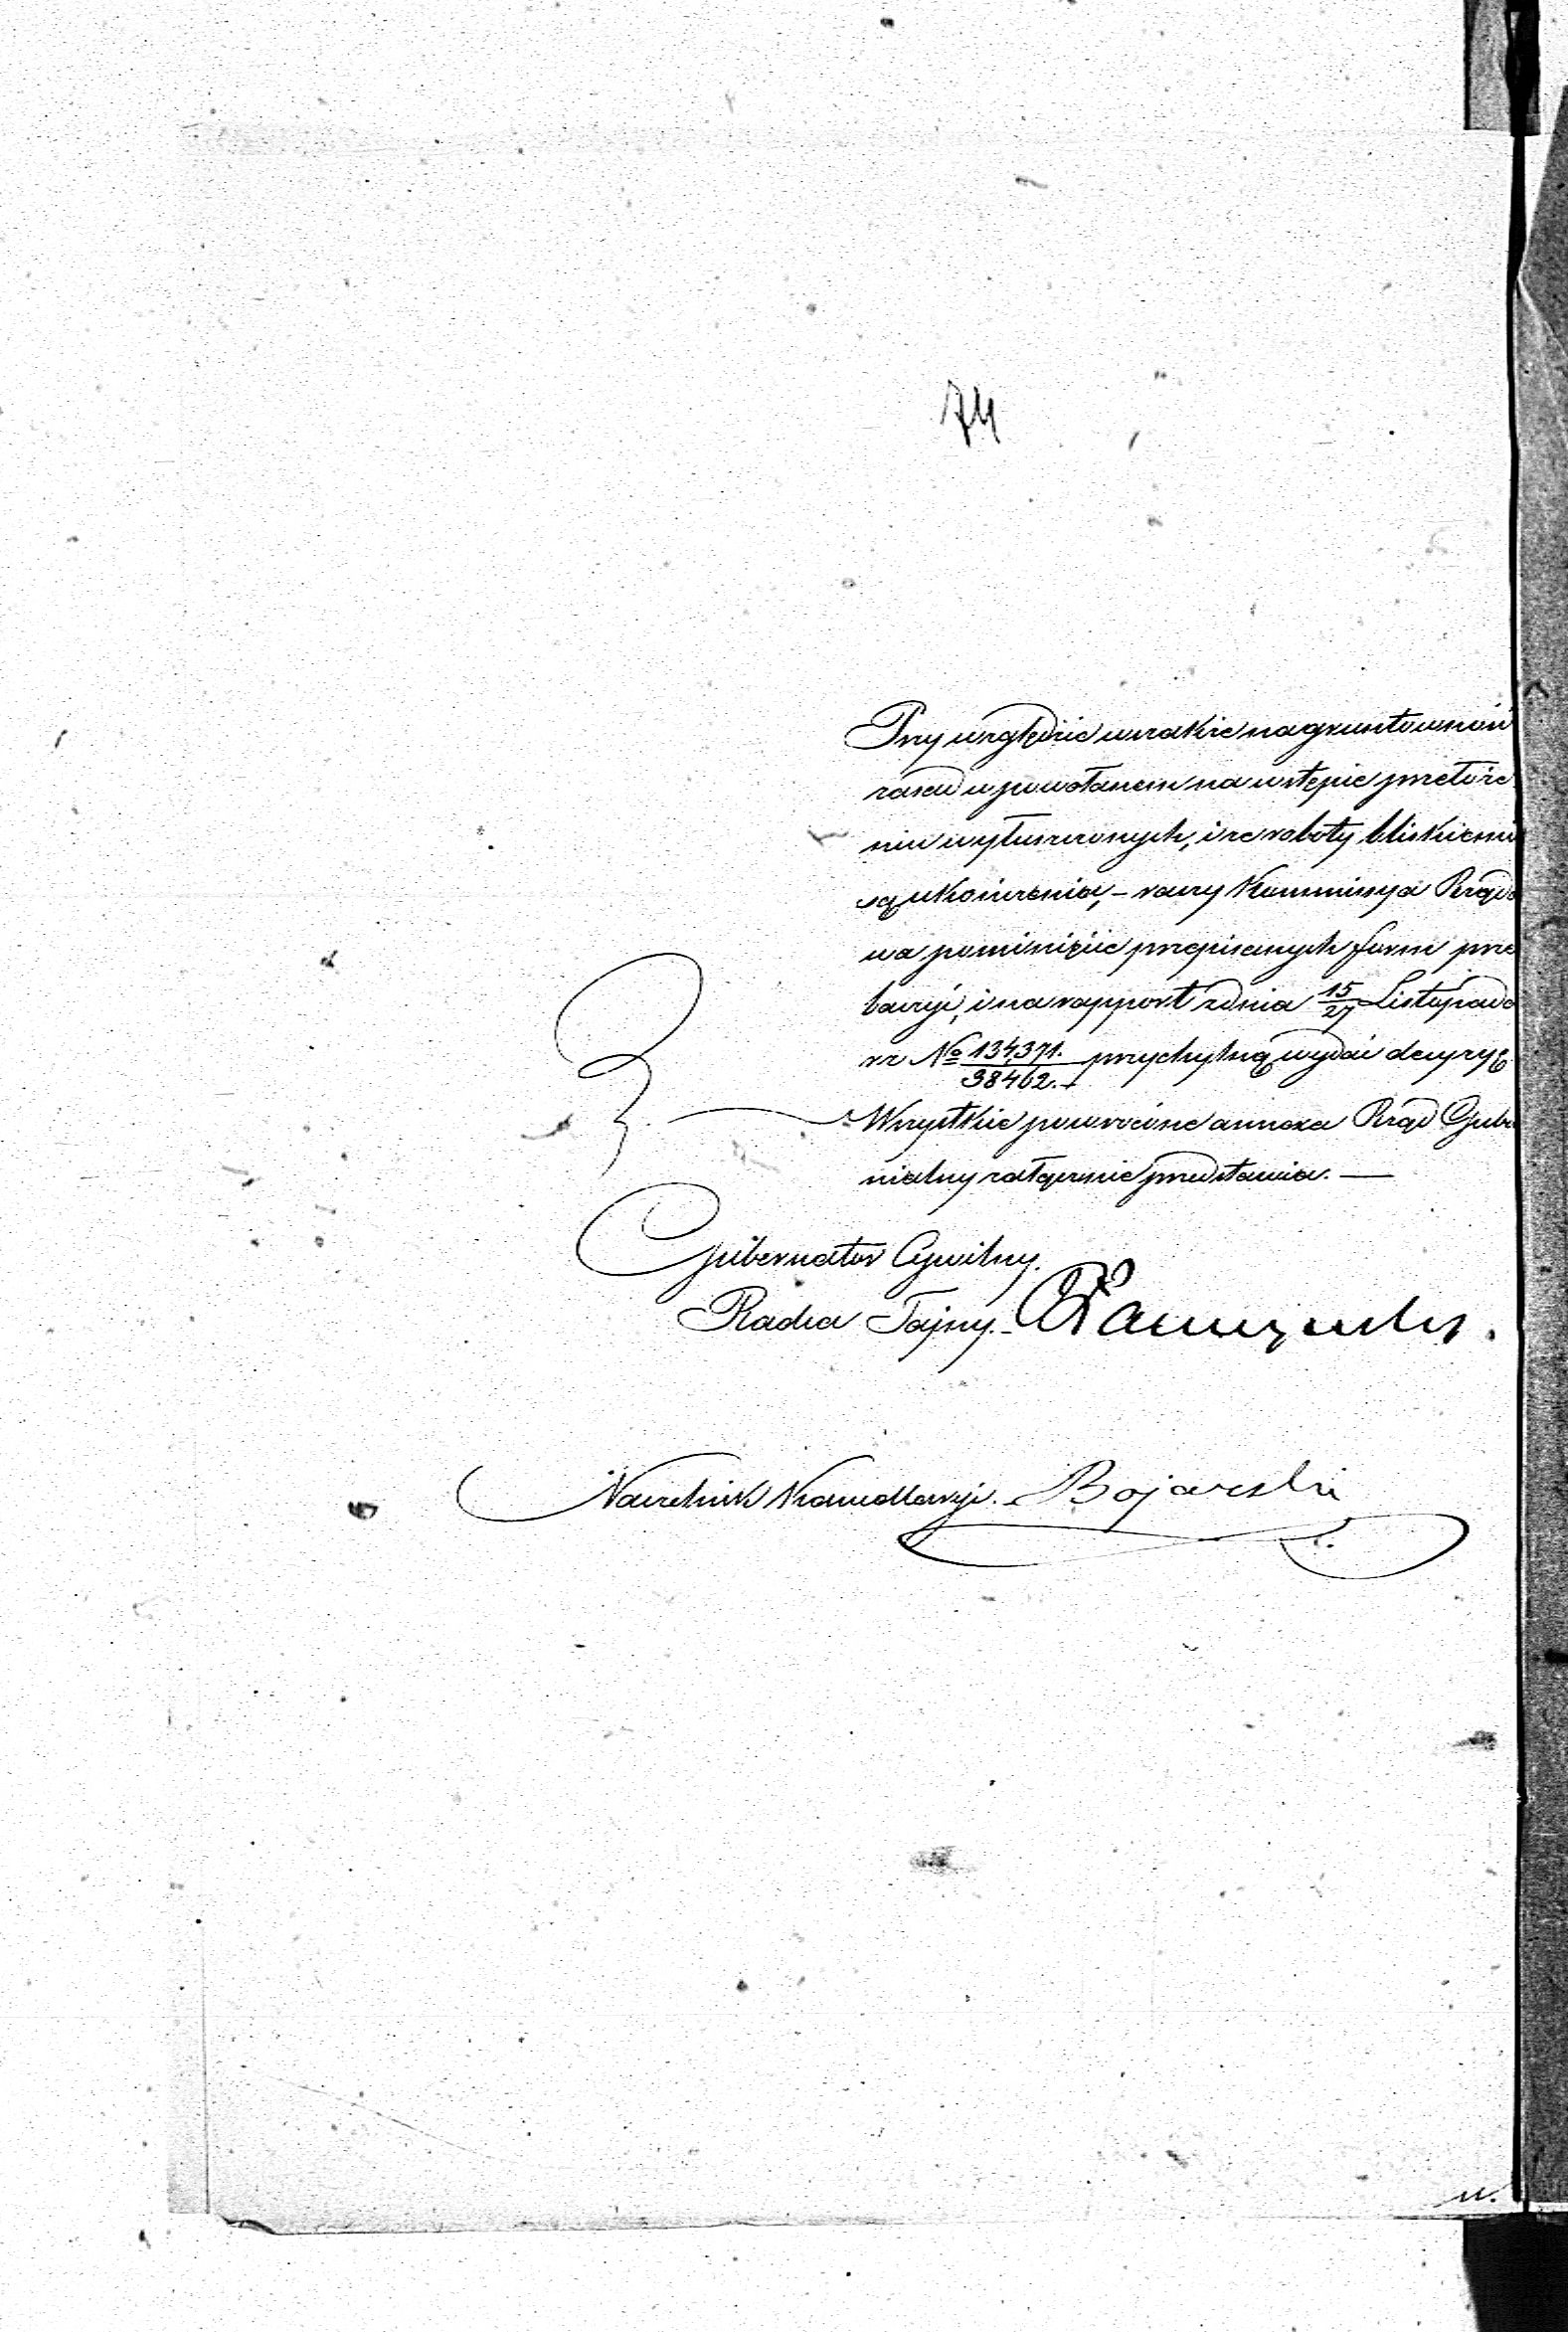 74
Przy względzie wszakże na gruntowność
zasad w powołanem na wstępie przełoże
niu wytuszczonych, i że roboty bliskiemi
są ukończenia, – raczy Kommissya Rządo
wa pominięcie przepisanych form prze
baczyć, i na rapport z dnia 15/27 Listopada
r z № 134,371./38462. przychylną wydać decyzyę.
Wszystkie powrócone annexa Rząd Guber
nialny załącznie przedstawia. —
Gubernator Cywilny.
Radca Tajny.
Naczelnik Kancellaryi. Bojarski